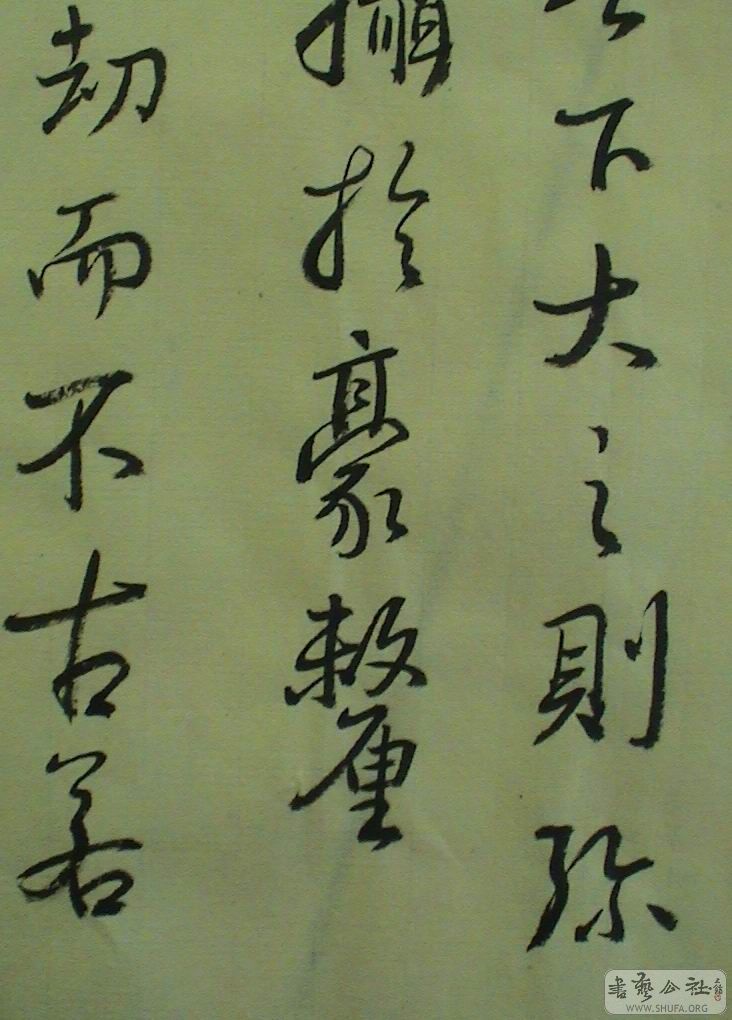 下大之則弥
攝於豪釐
劫而不古若
書藝公社
WWW.SHUFA.ORG